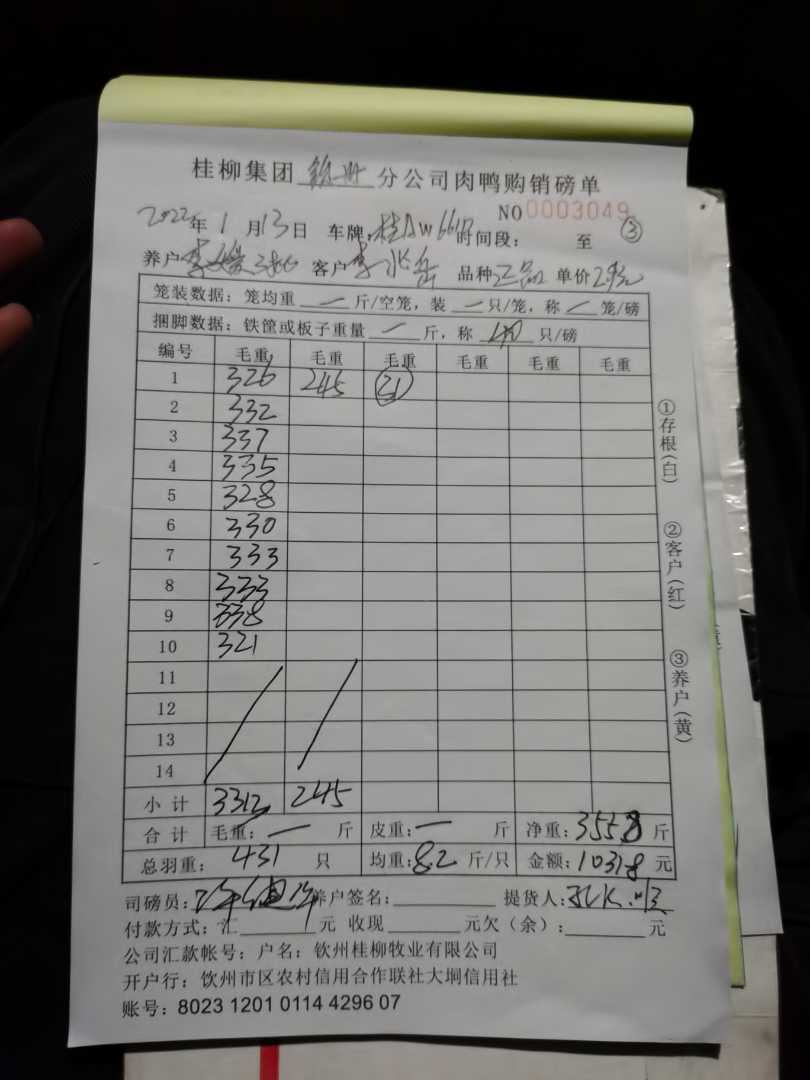 桂柳集团 钦州 分公司肉鸭购销磅单
NO 0003049
2022年 1 月 13日 车牌: 桂AW6617 时间段: 至 ③
养户 李 客户 李兆岳 品种 正品 单价 2.9元
笼装数据: 笼均重 — 斤/空笼, 装 — 只/笼, 称 — 笼/磅
捆脚数据: 铁筐或板子重量 — 斤, 称 40 只/磅
编号 毛重 毛重 毛重 毛重 毛重 毛重
1 326 245 31
2 332
3 337
4 335
5 328
6 330
7 333
8 333
9 338
10 321
11
12
13
14
小计 3312 245
合计 毛重: — 斤 皮重: — 斤 净重: 3558 斤
总羽重: 431 只 均重: 8.2 斤/只 金额: 10318 元
司磅员: 养户签名: 提货人:
付款方式: 汇 元 收现 元欠(余): 元
公司汇款帐号: 户名: 钦州桂柳牧业有限公司
开户行: 饮州市区农村信用合作联社大垌信用社
账号: 8023 1201 0114 4296 07
①存根(白)
②客户(红)
③养户(黄)